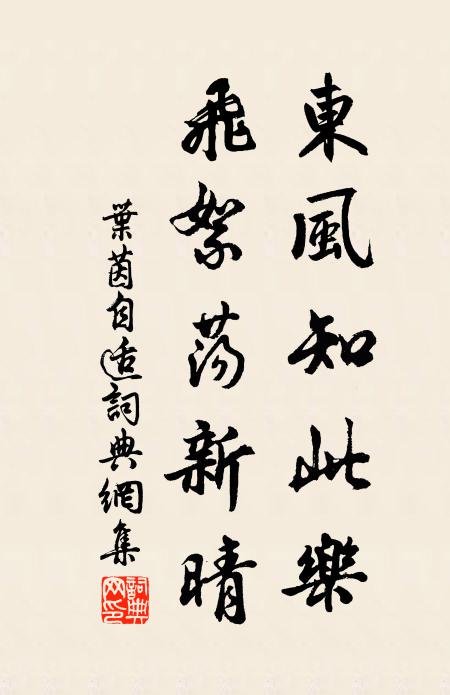 東風知此樂
飛絮蕩新晴
葉茵自適詞典網集
詞典網印